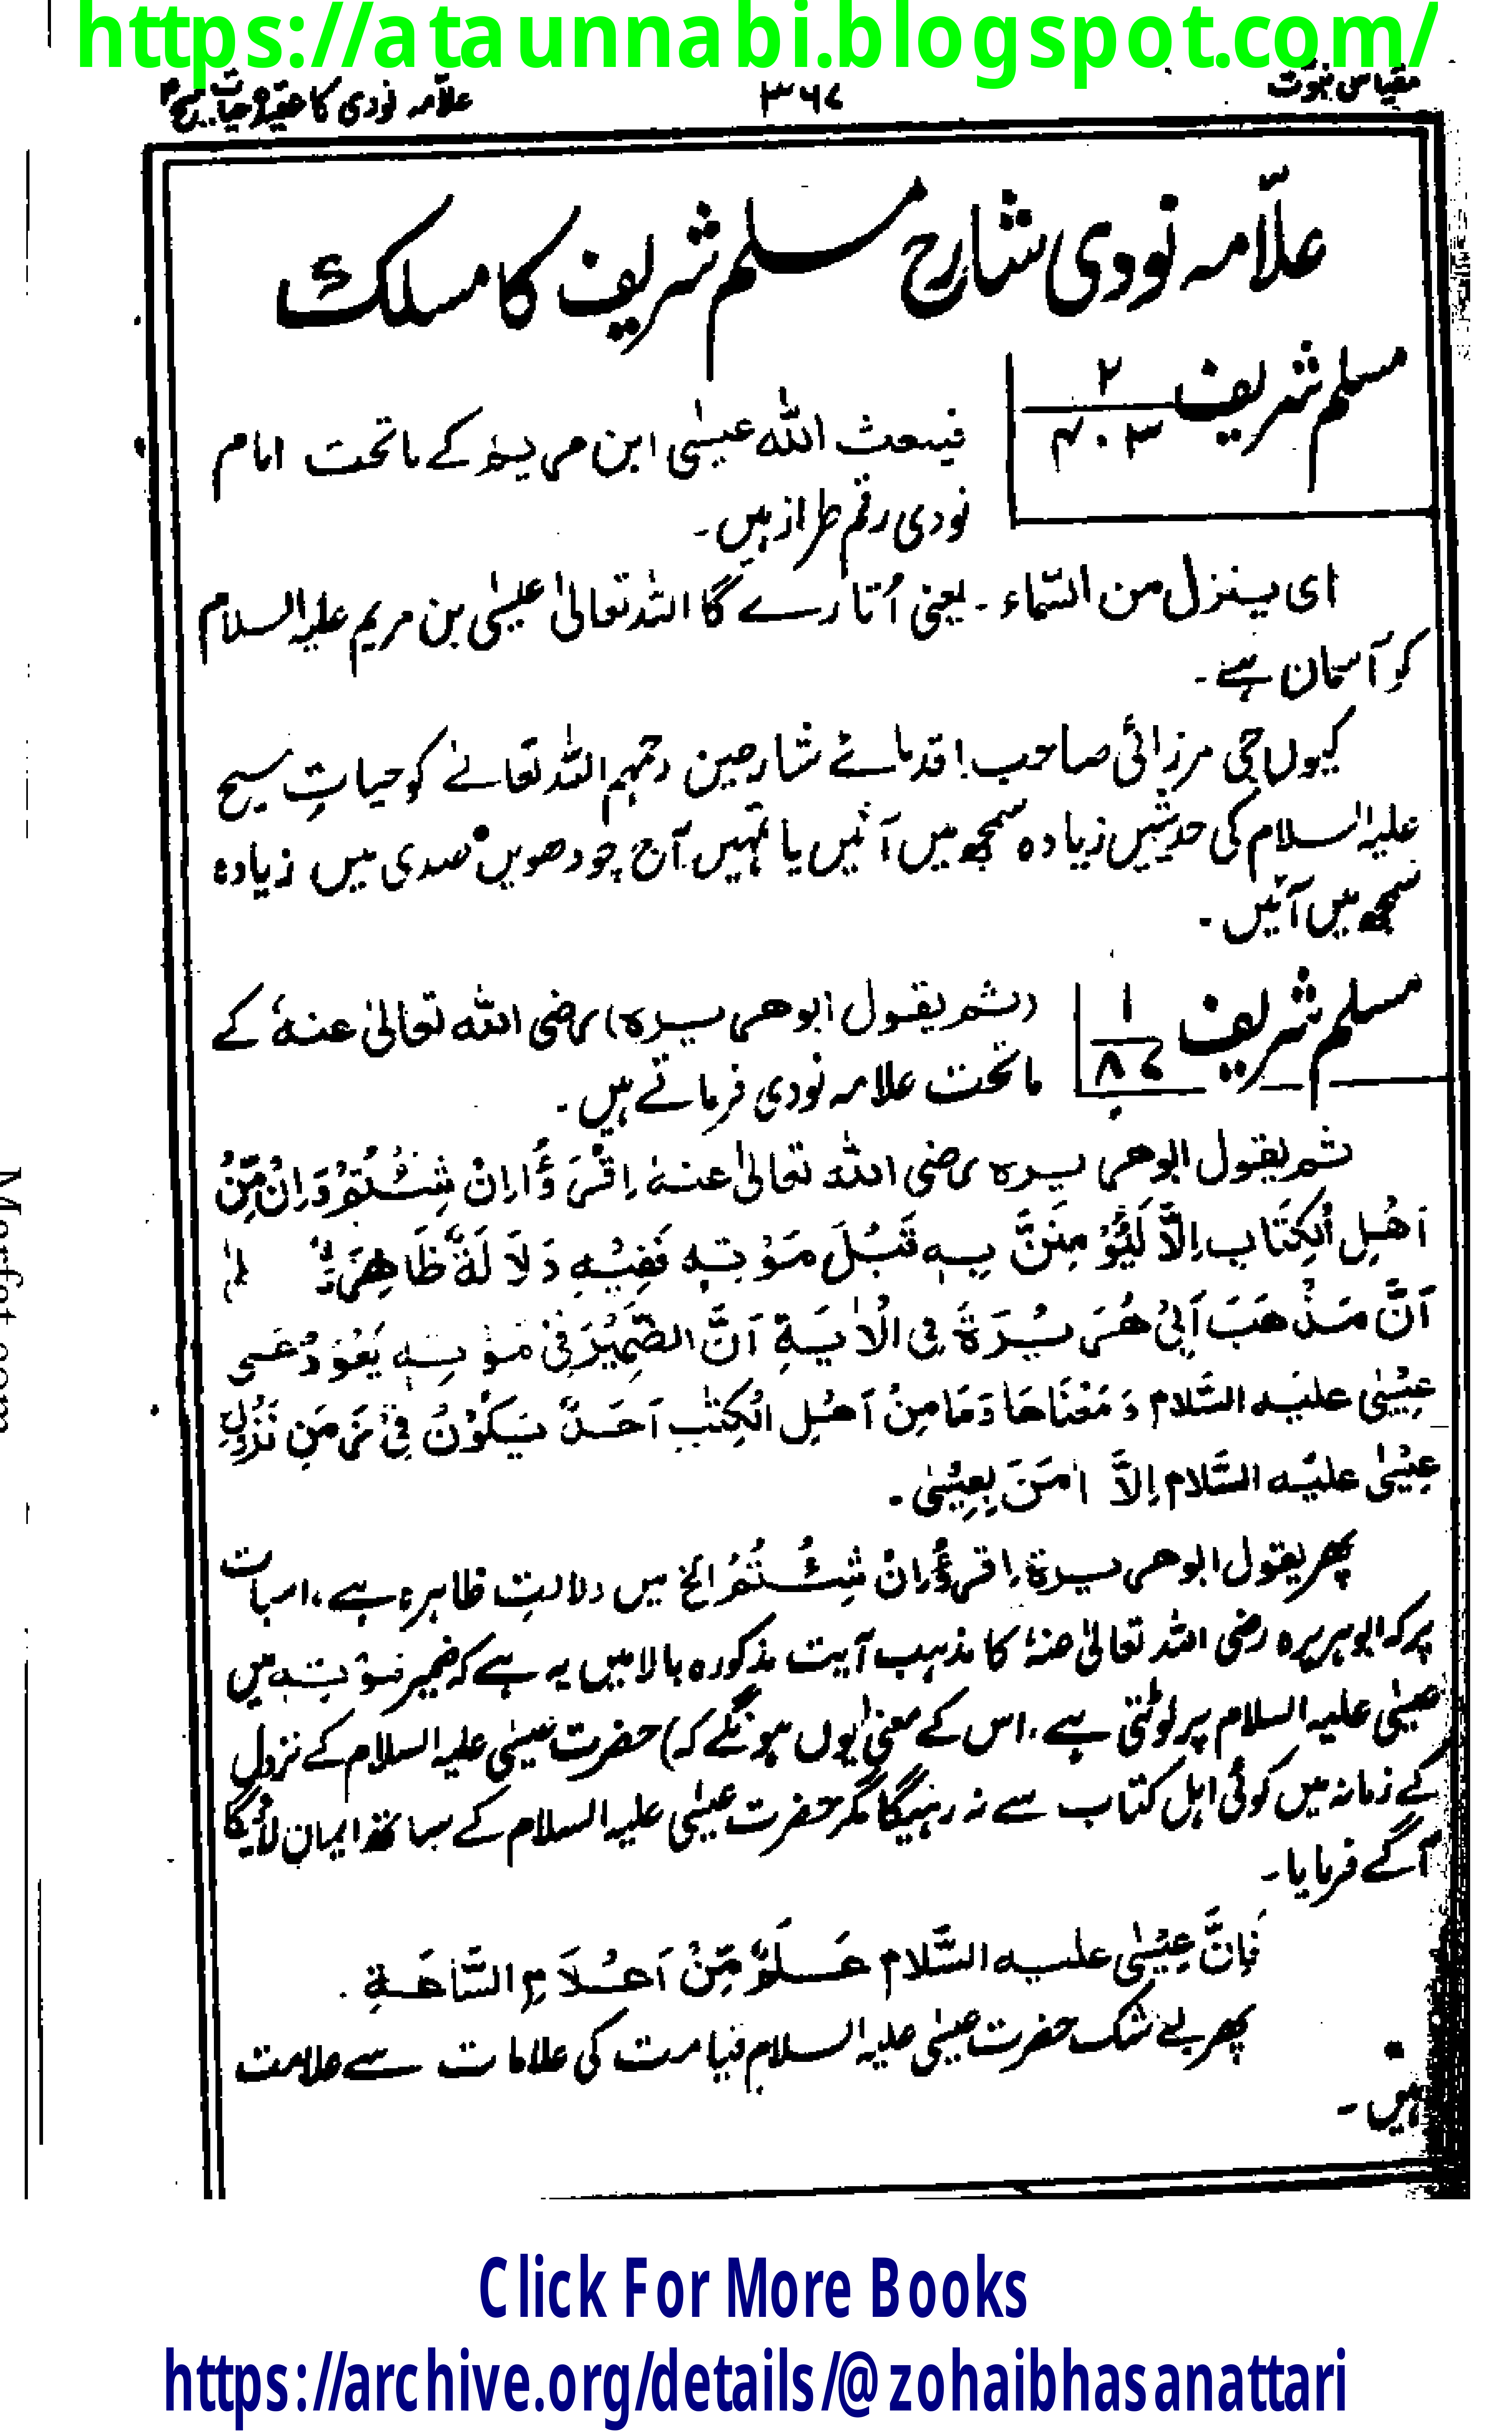 https://ataunnabi.blogspot.com/
مقیاس نبوت ۳۶۷ علامہ نووی کا عقیدہ حیات مسیح
علّامہ نووی شارح مسلم شریف کا مسلک
مسلم شریف ۲/۴۰۳
فیبعث اللہ عیسٰی ابن مریم کے ماتحت امام
نووی رقم طراز ہیں۔
ای ینزل من السّماء ۔ یعنی اُتارے گا اللہ تعالیٰ عیسٰی بن مریم علیہ السلام
کو آسمان سے۔
کیوں جی مرزائی صاحب! قدمائے شارحین رحمہم اللہ تعالےٰ کو حیاتِ مسیح
علیہ السلام کی حدیثیں زیادہ سمجھ میں آئیں یا تمہیں آج چودھویں صدی میں زیادہ
سمجھ میں آئیں۔
مسلم شریف ۱/۸۷
(ثم یقول ابوھریرہ) رضی اللہ تعالیٰ عنہٗ کے
ماتحت علامہ نووی فرماتے ہیں۔
ثم یقول ابوھریرہ رضی اللہ تعالیٰ عنہٗ اِقْرَؤُا اِنْ شِئْتُمْ وَاِنْ مِّنْ
اَھْلِ الْکِتَابِ اِلَّا لَیُؤْمِنَنَّ بِہٖ قَبْلَ مَوْتِہٖ فَفِیْہِ دَلَالَۃٌ ظَاھِرَۃٌ
اَنَّ مَذْھَبَ اَبِیْ ھُرَیْرَۃَ فِی الْاٰیَۃِ اَنَّ الضَّمِیْرَ فِیْ مَوْتِہٖ یَعُوْدُ عَلٰی
عِیْسٰی علیہ السَّلام وَمَعْنَاھَا وَمَا مِنْ اَھْلِ الْکِتٰبِ اَحَدٌ یَکُوْنُ فِیْ زَمَنِ نُزُوْلِ
عِیْسٰی علیہ السَّلام اِلَّا اٰمَنَ بِعِیْسٰی۔
پھر یقول ابوھریرۃ اِقرءُوْا اِنْ شِئْتُمْ الخ میں دلالتِ ظاہرہ ہے، اس بات
پر کہ ابوہریرہ رضی اللہ تعالیٰ عنہٗ کا مذہب آیت مذکورہ بالا میں یہ ہے کہ ضمیر مَوْتِہٖ میں
عیسٰی علیہ السلام پر لوٹتی ہے، اس کے معنیٰ یوں ہونگے کہ) حضرت عیسٰی علیہ السلام کے نزول
کے زمانہ میں کوئی اہل کتاب سے نہ رہیگا مگر حضرت عیسٰی علیہ السلام کے ساتھ ایمان لائیگا
آگے فرمایا۔
فَاِنَّ عِیْسٰی علیہ السَّلام عَلَمٌ مِّنْ اَعْلَامِ السَّاعَۃِ۔
پھر بے شک حضرت عیسٰی علیہ السلام قیامت کی علامات سے علامت
ہیں۔
Marfat.com
Click For More Books
https://archive.org/details/@zohaibhasanattari